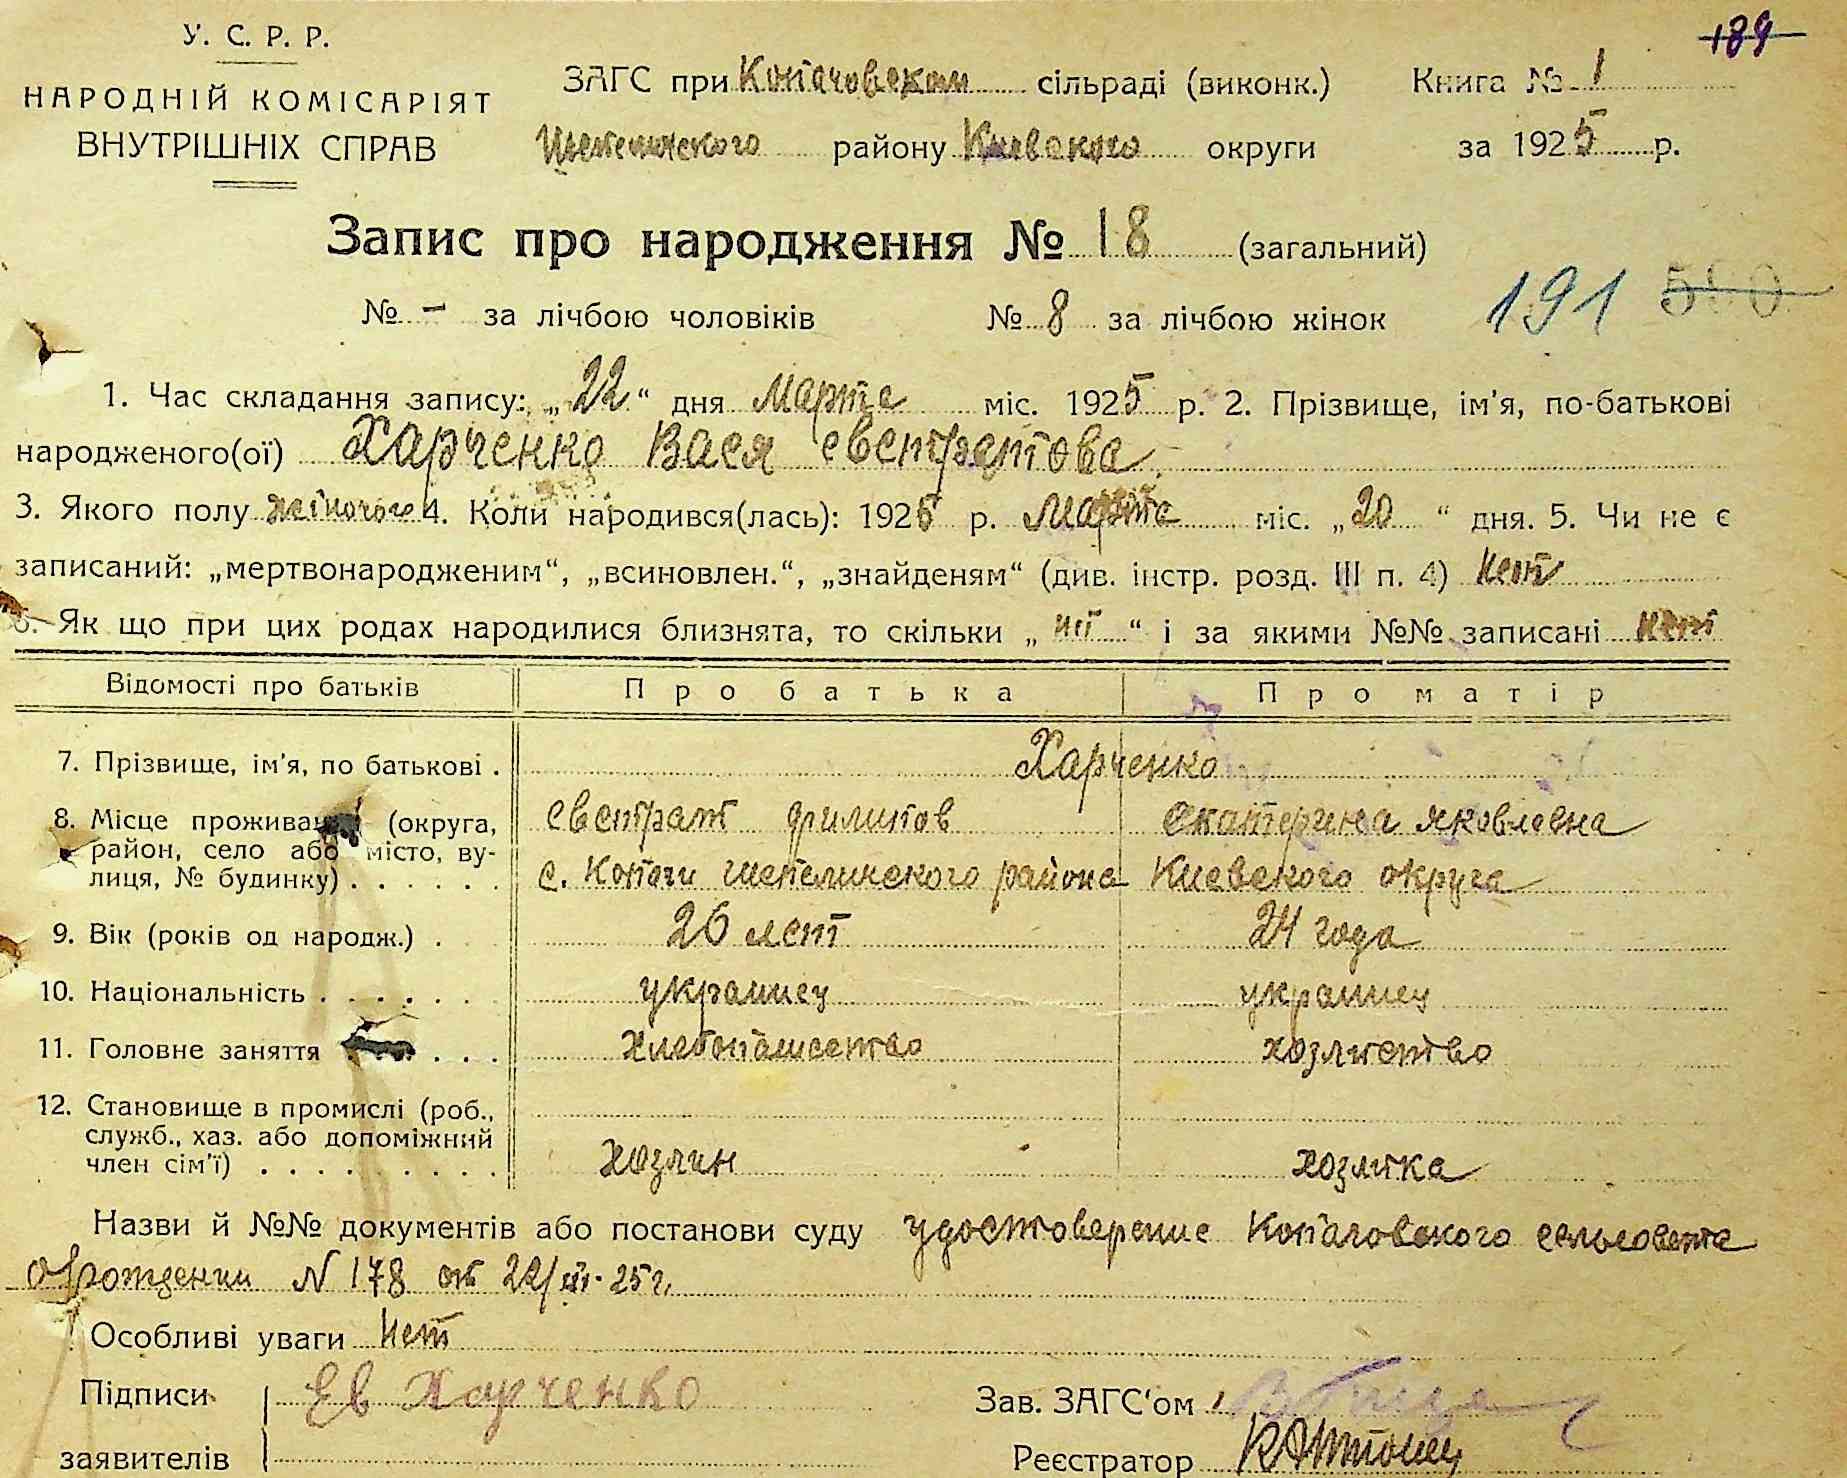 189
У. С. Р. Р.
НАРОДНІЙ КОМІСАРІЯТ
ВНУТРІШНІХ СПРАВ
ЗАГС при Копачовском сільраді (виконк.) Книга № 1
Шепеличского району Киевского округи за 1925 р.
Запис про народження № 18 (загальний)
№ - за лічбою чоловіків № 8 за лічбою жінок 191 500
1. Час складання запису: „22“ дня Марта міс. 1925 р. 2. Прізвище, ім'я, по-батькові
народженого(ої) Харченко Вася евстратова
3. Якого полу жіночого 4. Коли народився(лась): 1925 р. Марта міс. „20“ дня. 5. Чи не є
записаний: „мертвонародженим“, „всиновлен.“, „знайденям“ (див. інстр. розд. III п. 4) нет
6. Як що при цих родах народилися близнята, то скільки „ “ і за якими №№ записані нет
Відомості про батьків Про батька Про матір
7. Прізвище, ім'я, по батькові . Харченко
8. Місце проживання (округа, евстрат филипов екатерина яковлевна
район, село або місто, ву-
лиця, № будинку) . . . . . . с. Копачи шепеличского района Киевского округа
9. Вік (років од народж.) . 26 лет 24 года
10. Національність . . . . . . украинец украинец
11. Головне заняття . . . хлебопашество хозяйство
12. Становище в промислі (роб.,
служб., хаз. або допоміжний
член сім'ї) . . . . . . . . . хозяин хозяйка
Назви й №№ документів або постанови суду удостоверение Копаловского сельсовета
о рождении N 178 от 22/III-25 г.
Особливі уваги нет
Підписи Ев Харченко Зав. ЗАГС'ом
заявителів Реєстратор